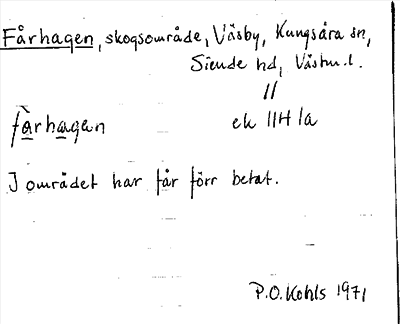 Fårhagen, skogsområde, Väsby, Kungsåra sn,
Siende hd, Västm.l.
//
fàrhagan
ek 11H 1a
I området har får förr betat.
P.O. Kohls 1971